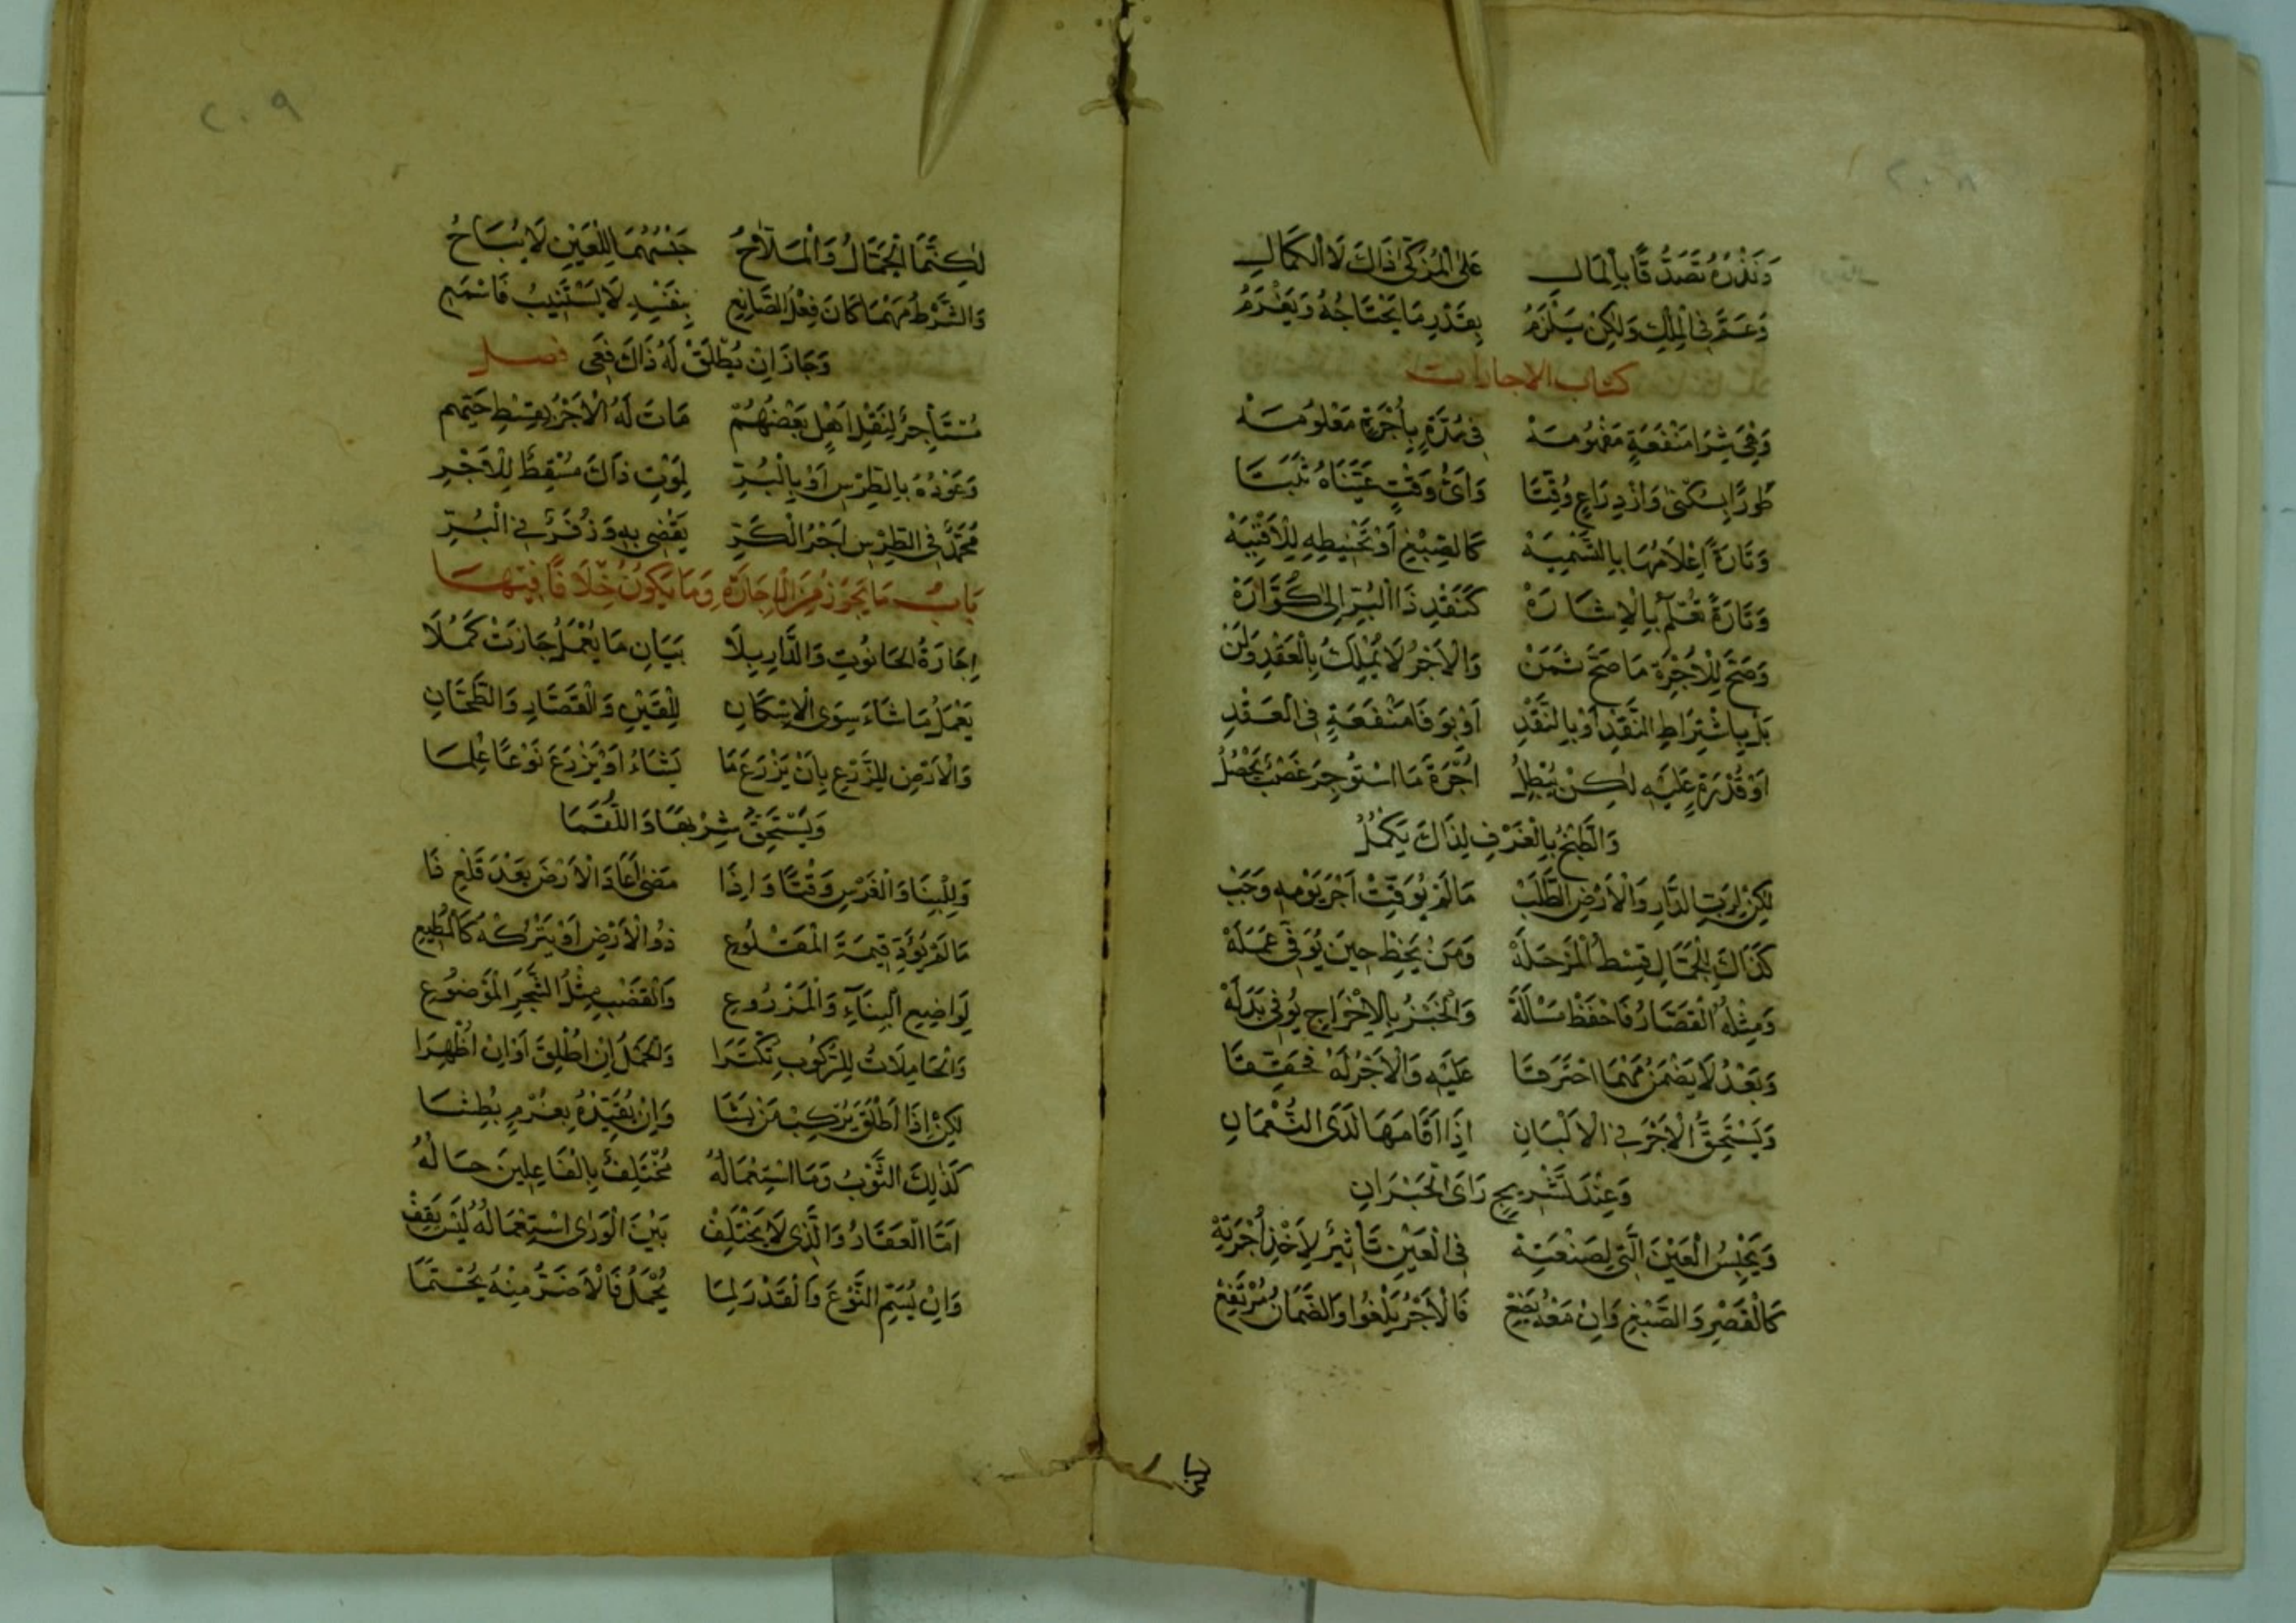 ٢٠٨
وَنَذْرُهُ تَصَدُّقًا بِالْمَالِ عَلَى الْمُزَكّٰى ذَاكَ لَا الْكَمَالِ
وَعَمَّ فِي الْمِلْكِ وَلٰكِنْ يَلْزَمُ بِقَدْرِ مَا يَحْتَاجُهُ وَيَغْرَمُ
كتاب الاجارات
وَهْيَ شِرَا مَنْفَعَةٍ مَفْهُومَهْ فِي مُدَّةٍ بِأُجْرَةٍ مَعْلُومَهْ
طَوْرًا بِسُكْنٰى وَازْدِرَاعٍ وُقِّتَا وَأَيُّ وَقْتٍ عَيَّنَاهُ ثَبَتَا
وَتَارَةً اِعْلَامُهَا بِالتَّسْمِيَهْ كَالصِّبْغِ أَوْ تَخْيِيطِهِ لِلْأَقْبِيَهْ
وَتَارَةً تُعْلَمُ بِالْاِشَارَهْ كَنَقْدِ ذَا الْبُرِّ اِلٰى كُوَّارَهْ
وَصَحَّ لِلْأُجْرَةِ مَا صَحَّ ثَمَنْ وَالْأَجْرُ لَا يُمْلَكُ بِالْعَقْدِ وَلَنْ
بَلْ بِاشْتِرَاطِ النَّقْدِ أَوْ بِالنَّقْدِ اَوْ بِوَفَا مَنْفَعَةٍ فِي الْعَقْدِ
اَوْ قُدْرَةٍ عَلَيْهِ لٰكِنْ يُبْطِلُ اُجْرَةَ مَا اسْتُوجِرَ غَصْبٌ يَحْصُلُ
وَالطَّبْخُ بِالْغَرْفِ لِذَاكَ يَكْمُلُ
لٰكِنْ لِرَبِّ الدَّارِ وَالْأَرْضِ الطَّلَبْ مَا لَمْ يُوَقَّتْ اَجْرَ يَوْمِهِ وَجَبْ
كَذَاكَ لِلْجَمَّالِ قِسْطُ الْمَرْحَلَهْ وَمَنْ يَخِطْ حِينَ يُوَفِّي عَمَلَهْ
وَمِثْلُهُ الْقَصَّارُ فَاحْفَظْ مَسْأَلَهْ وَالْخَبْزُ بِالْاِخْرَاجِ يُوفِي بَدَلَهْ
وَبَعْدُ لَا يَضْمَنُ مَهْمَا احْتَرَقَا عَلَيْهِ وَالْأَجْرُ لَهُ تَحَقَّقَا
وَيَسْتَحِقُّ الْأَجْرَ فِي الْأَلْبَانِ اِذَا اَقَامَهَا لَدَى النُّعْمَانِ
وَعِنْدَ تَشْرِيجٍ رَاَى الْحَبْرَانِ
وَيَحْبِسُ الْعَيْنَ الَّتِي لِصَنْعَتِهْ فِي الْعَيْنِ تَأْثِيرٌ لِأَخْذِ أُجْرَتِهْ
كَالْقَصْرِ وَالصَّبْغِ وَاِنْ بَعْدُ يَضِعْ فَالْأَجْرُ يَلْغُو وَالضَّمَانُ مُرْتَفِعْ
٢٠٩
لٰكِنَّمَا الْجَمَّالُ وَالْمَلَّاحُ حَبْسُهُمَا لِلْعَيْنِ لَا يُبَاحُ
وَالشَّرْطُ مَهْمَا كَانَ فِعْلَ الصَّانِعِ بِنَفْسِهِ لَا يَسْتَنِيبُ فَاسْمَعِ
وَجَازَ اِنْ يُطْلَقْ لَهُ ذَاكَ فَعِي فصل
مُسْتَأْجِرٌ لِنَقْلِ اَهْلٍ بَعْضُهُمْ مَاتَ لَهُ الْأَجْرُ بِقِسْطٍ حَتْمِهِم
وَعَوْدُهُ بِالطِّرْسِ اَوْ بِالْبُرِّ لِمَوْتِ ذَاكَ مُسْقِطٌ لِلْأَجْرِ
مُحَمَّدٌ فِي الطِّرْسِ اَجْرَ الْكَرِّ يَقْضِي بِهِ وَزُفَرٌ فِي الْبُرِّ
بَابُ مَا يَجُوزُ مِنَ الْاِجَارَةِ وَمَا يَكُونُ خِلَافًا فِيهَا
اِجَارَةُ الْحَانُوتِ وَالدَّارِ بِلَا بَيَانِ مَا يُعْمَلُ جَازَتْ كَمُلَا
يَعْمَلُ مَا شَاءَ سِوَى الْاِسْكَانِ لِلْقَيْنِ وَالْقَصَّارِ وَالطَّحَّانِ
وَالْأَرْضِ لِلزَّرْعِ بِاَنْ يَزْرَعَ مَا يَشَاءُ اَوْ يَزْرَعَ نَوْعًا عُلِمَا
وَيَسْتَحِقُّ شِرْبَهَا وَاللَّقَمَا
وَلِلْبِنَا وَالْغَرْسِ وَقْتًا وَاِذَا مَضٰى اَعَادَ الْأَرْضَ بَعْدَ قَلْعِ ذَا
مَا لَمْ يُؤَدِّ قِيمَةَ الْمَقْلُوعِ ذُو الْأَرْضِ اَوْ يَتْرُكْهُ كَالْمُطِيعِ
لِوَاضِعِ الْبِنَاءِ وَالْمَزْرُوعِ وَالْقَضْبُ مِثْلُ الشَّجَرِ الْمَوْضُوعِ
وَالْحَامِلَاتُ لِلرُّكُوبِ تُكْتَرَا وَالْحَمْلِ اِنْ اُطْلِقَ اَوْ اِنْ اُظْهِرَا
لٰكِنْ اِذَا اَطْلَقَ يَرْكَبْ مَنْ يَشَا وَاِنْ يُقَيِّدْهُ بِغُرْمٍ بُطِشَا
كَذٰلِكَ الثَّوْبُ وَمَا اسْتِعْمَالُهُ مُخْتَلِفٌ بِالْفَاعِلِينَ حَالُهُ
اَمَّا الْعَقَارُ وَالَّذِي لَا يَخْتَلِفْ بَيْنَ الْوَرٰى اسْتِعْمَالُهُ لَيْسَ يَقِفْ
وَاِنْ يُسَمِّ النَّوْعَ وَالْقَدْرَ لِمَا يُحْمَلُ فَالْأَضَرُّ مِنْهُ يُحْتَمَا